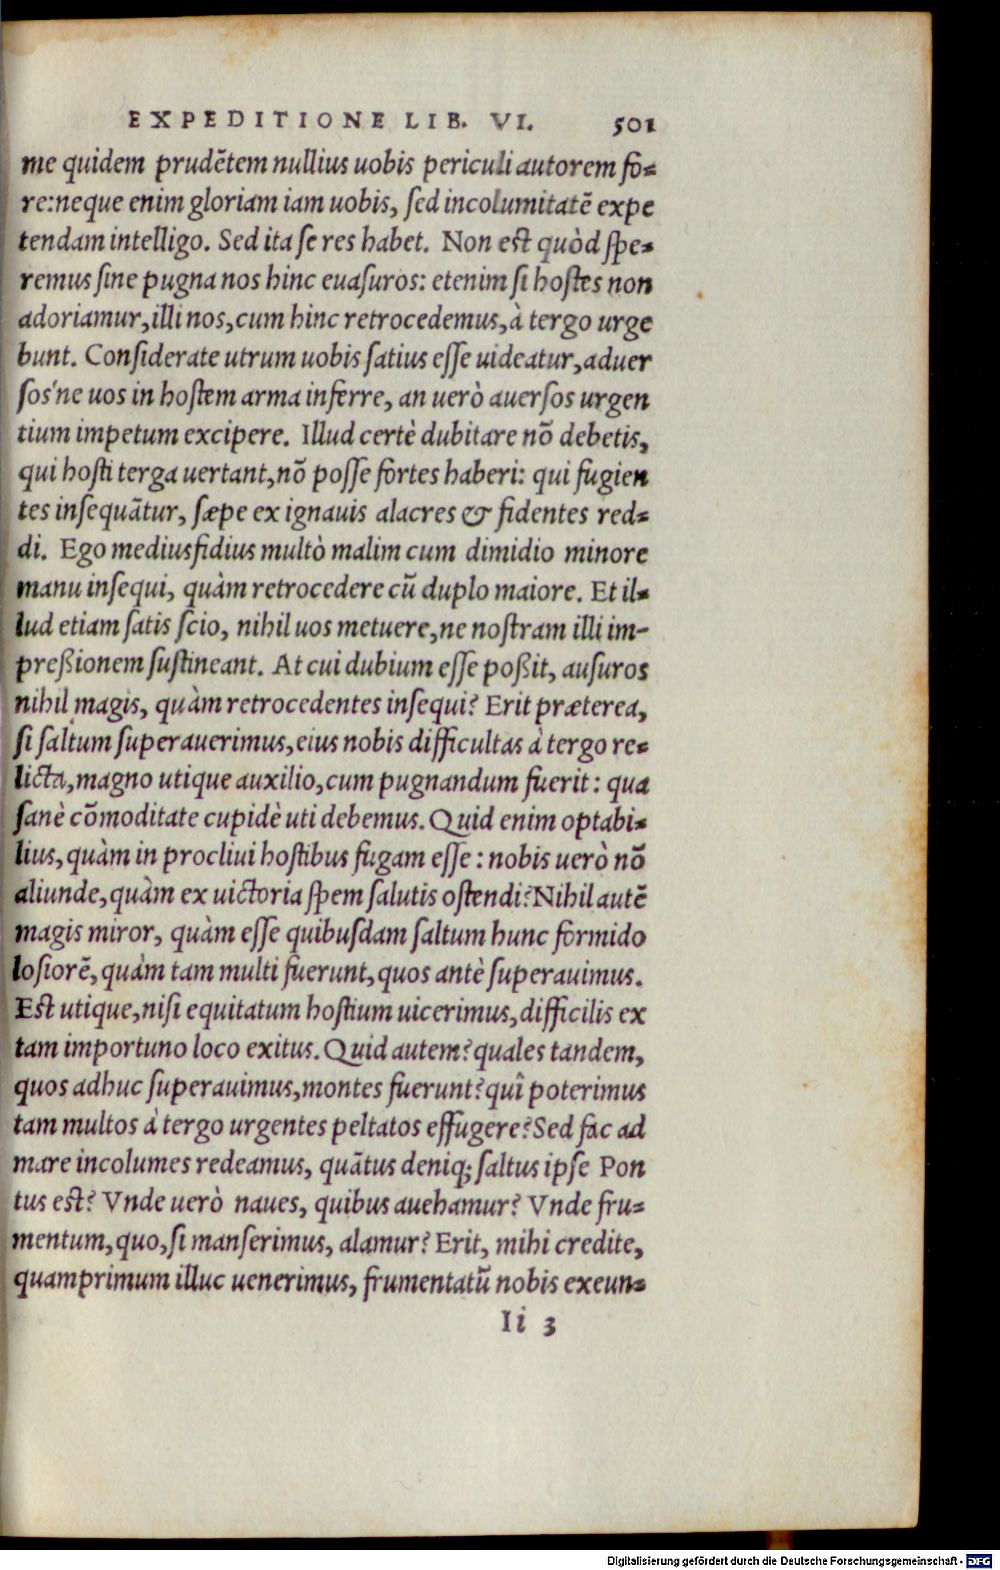 EXPEDITIONE LIB. VI. 501
me quidem prudētem nullius uobis periculi autorem fo-
re: neque enim gloriam iam uobis, sed incolumitatē expe
tendam intelligo. Sed ita se res habet. Non est quòd spe-
remus sine pugna nos hinc euasuros: etenim si hostes non
adoriamur, illi nos, cum hinc retrocedemus, à tergo urge
bunt. Considerate utrum uobis satius esse uideatur, aduer
sos'ne uos in hostem arma inferre, an uerò auersos urgen
tium impetum excipere. Illud certè dubitare nō debetis,
qui hosti terga uertant, nō posse fortes haberi: qui fugien
tes insequātur, sæpe ex ignauis alacres & fidentes red-
di. Ego mediusfidius multò malim cum dimidio minore
manu insequi, quàm retrocedere cū duplo maiore. Et il-
lud etiam satis scio, nihil uos metuere, ne nostram illi im-
preßionem sustineant. At cui dubium esse poßit, ausuros
nihil magis, quàm retrocedentes insequi? Erit præterea,
si saltum superauerimus, eius nobis difficultas à tergo re-
licta, magno utique auxilio, cum pugnandum fuerit: qua
sanè cōmoditate cupidè uti debemus. Quid enim optabi-
lius, quàm in procliui hostibus fugam esse: nobis uerò nō
aliunde, quàm ex uictoria spem salutis ostendi? Nihil autē
magis miror, quàm esse quibusdam saltum hunc formido
losiorē, quàm tam multi fuerunt, quos antè superauimus.
Est utique, nisi equitatum hostium uicerimus, difficilis ex
tam importuno loco exitus. Quid autem? quales tandem,
quos adhuc superauimus, montes fuerunt? quî poterimus
tam multos à tergo urgentes peltatos effugere? Sed fac ad
mare incolumes redeamus, quātus deniq; saltus ipse Pon
tus est? Vnde uerò naues, quibus auehamur? Vnde fru-
mentum, quo, si manserimus, alamur? Erit, mihi credite,
quamprimum illuc uenerimus, frumentatū nobis exeun-
Ii 3
Digitalisierung gefördert durch die Deutsche Forschungsgemeinschaft - DFG